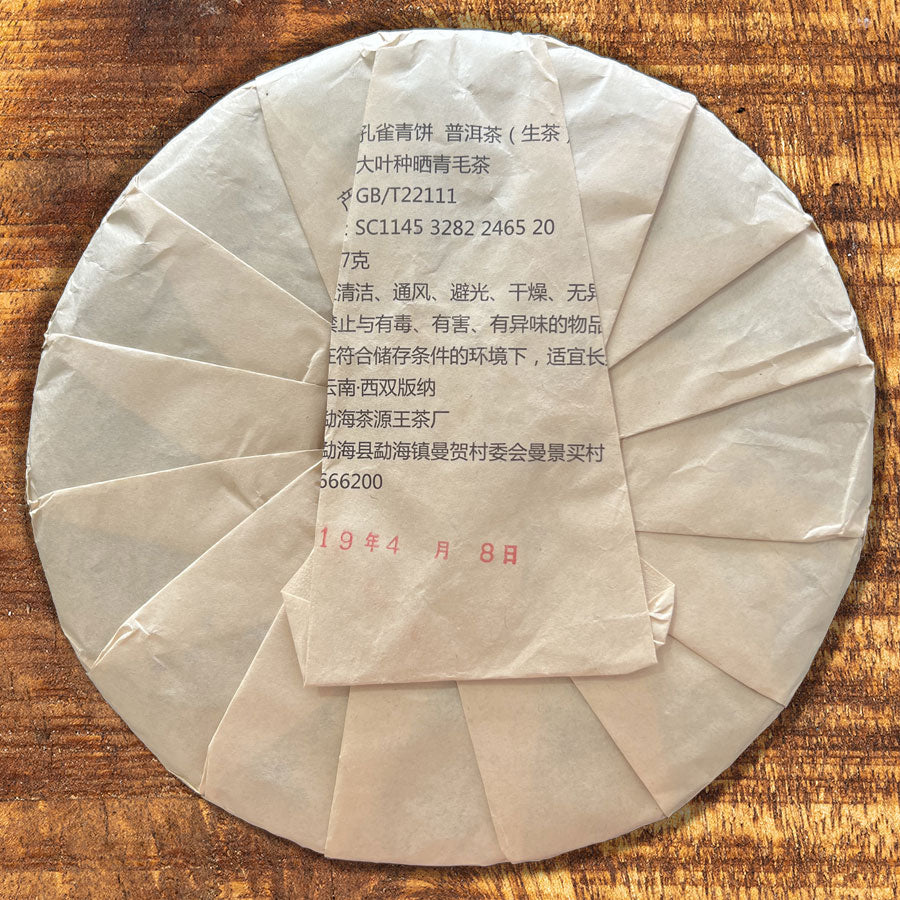 孔雀青饼 普洱茶（生茶）
大叶种晒青毛茶
GB/T22111
: SC1145 3282 2465 20
7克
清洁、通风、避光、干燥、无异
禁止与有毒、有害、有异味的物品
在符合储存条件的环境下，适宜长
云南·西双版纳
勐海茶源王茶厂
勐海县勐海镇曼贺村委会曼景买村
666200
19年4 月 8日